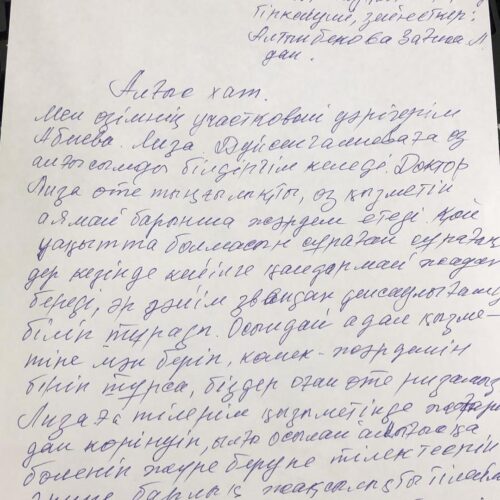 тіркеуші, зейнеткер:
Алтынбекова Загипа
дан.
Алғыс хат.
Мен өзімнің участковый дәрігерім
Абиева Лиза Дүйсенгалиеваға өз
алғысымды білдіргім келеді. Доктор
Лиза өте тыңғылықты, өз қызметін
аямай барынша жәрдем етеді. Қай
уақытта болмасын сұраған сұрақ
дер кезінде кейінге қалдырмай жауап
береді, әр дәйім звандап денсаулығамды
біліп тұрады. Осындай адал қызме-
тіне мән беріп, көмек-жәрдемін
беріп тұрса, біздер оған өте ризамыз
Лизаға тілерім қызметінде жоғары
дан көрінуін, ылғи осылай алғысқа
бөленіп жүре беруне тілектеспін
барлық жақсылықты